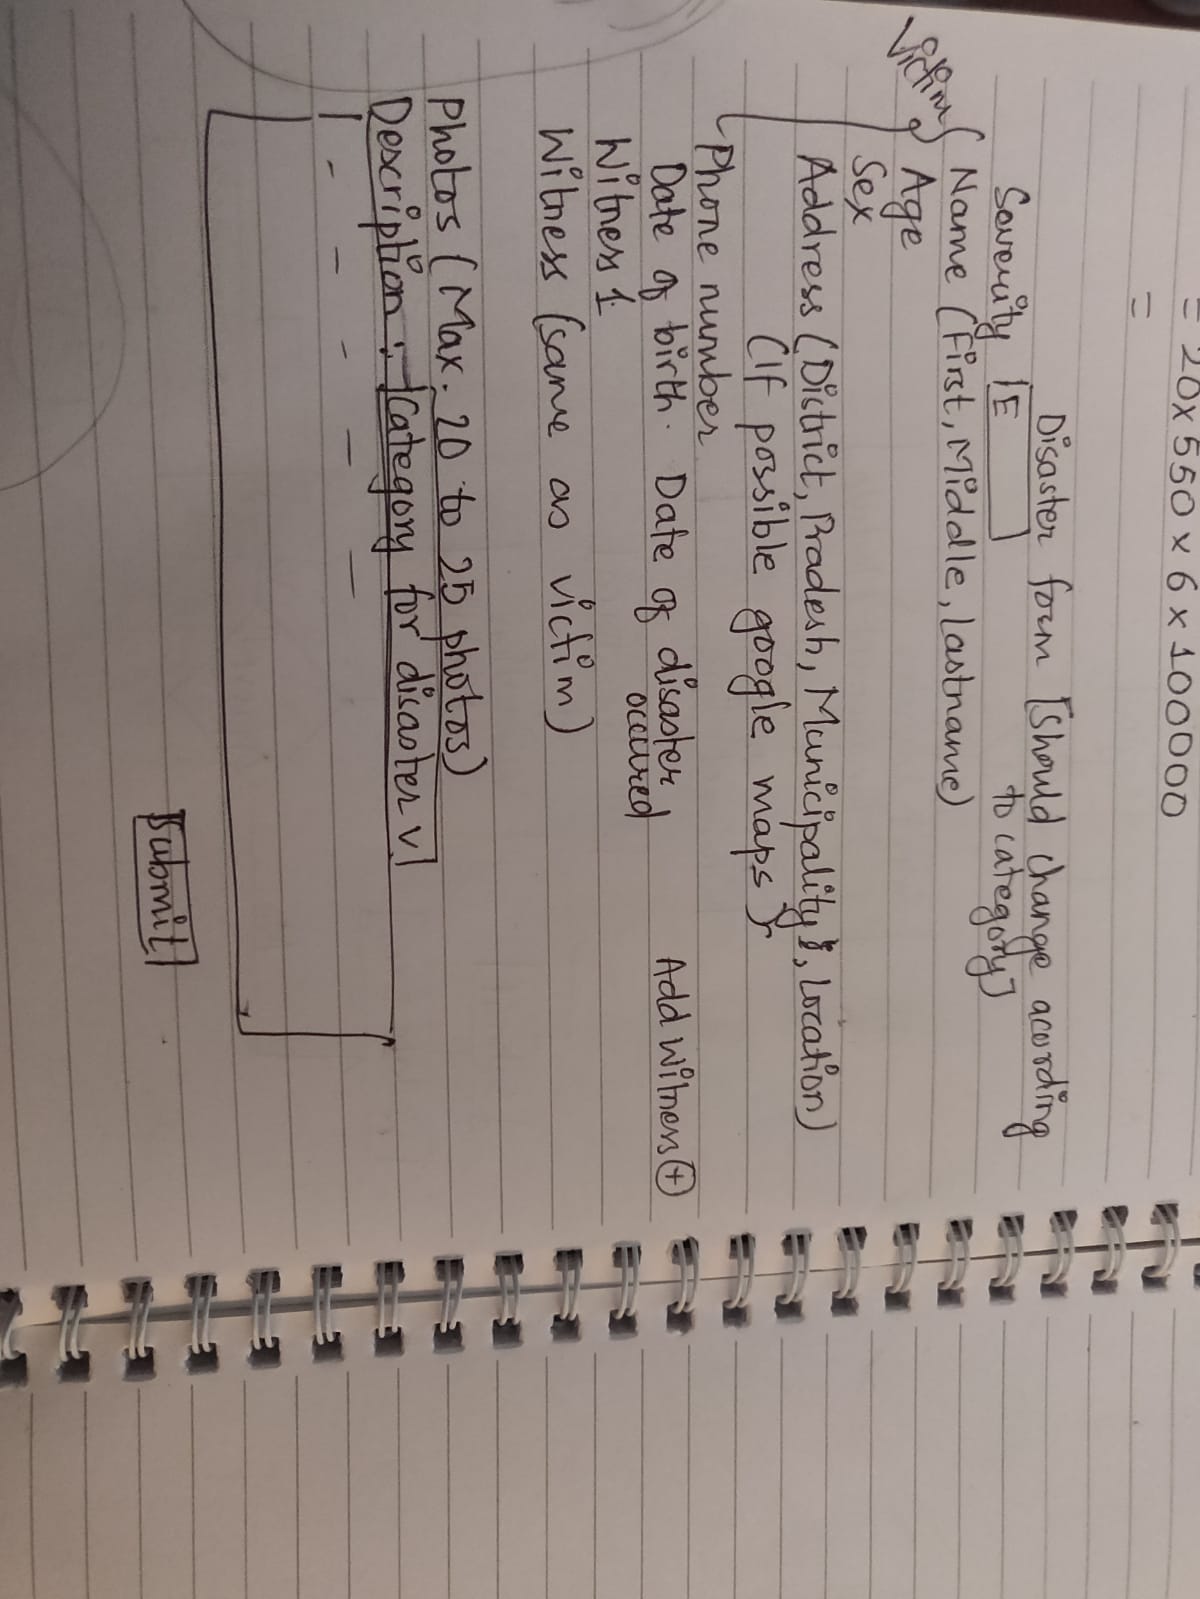 = 20x550 x 6 x 100000
=
Disaster form [Should change acording
to category]
Severity E
Victim
Name (First, Middle, Lastname)
Age
Sex
Address (District, Pradesh, Municipality, Location)
(If possible google maps
Phone number
Date of birth. Date of disaster
occured
Add Witness +
Witness 1
Witness (same as victim)
Photos (Max. 20 to 25 photos)
Description : Category for disaster v
- - - - -
Submit